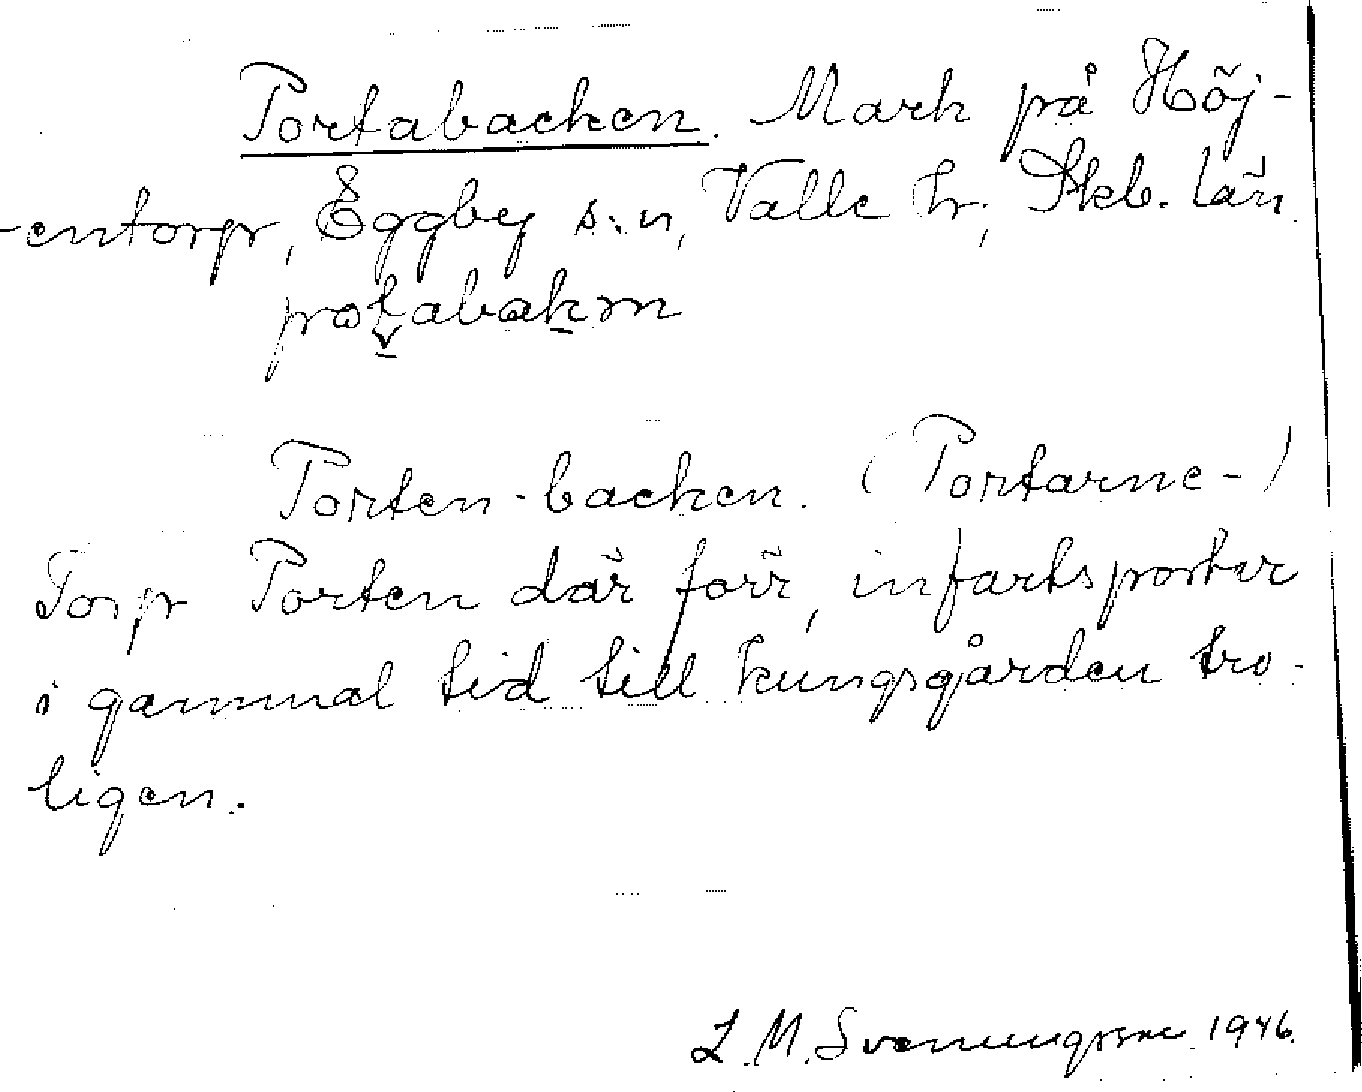 Portabacken. Mark på Höj-
-entorp, Eggby s:n, Valle hr, Skb. län.
potabakɯn
Porten-backen. (Portarne-)
Torp Porten där förr, infartsporter
i gammal tid till kungsgården tro-
ligen.
L. M. Svenungsson 1946.